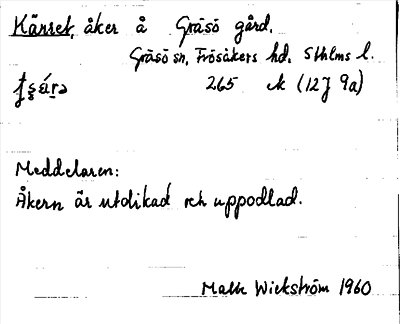 Känset, åker å Gräsö gård,
Gräsö sn, Frösåkers hd, Sthlms l.
265 ek (12J 9a)
Meddelaren:
Åkern är utdikad och uppodlad.
Wickström 1960